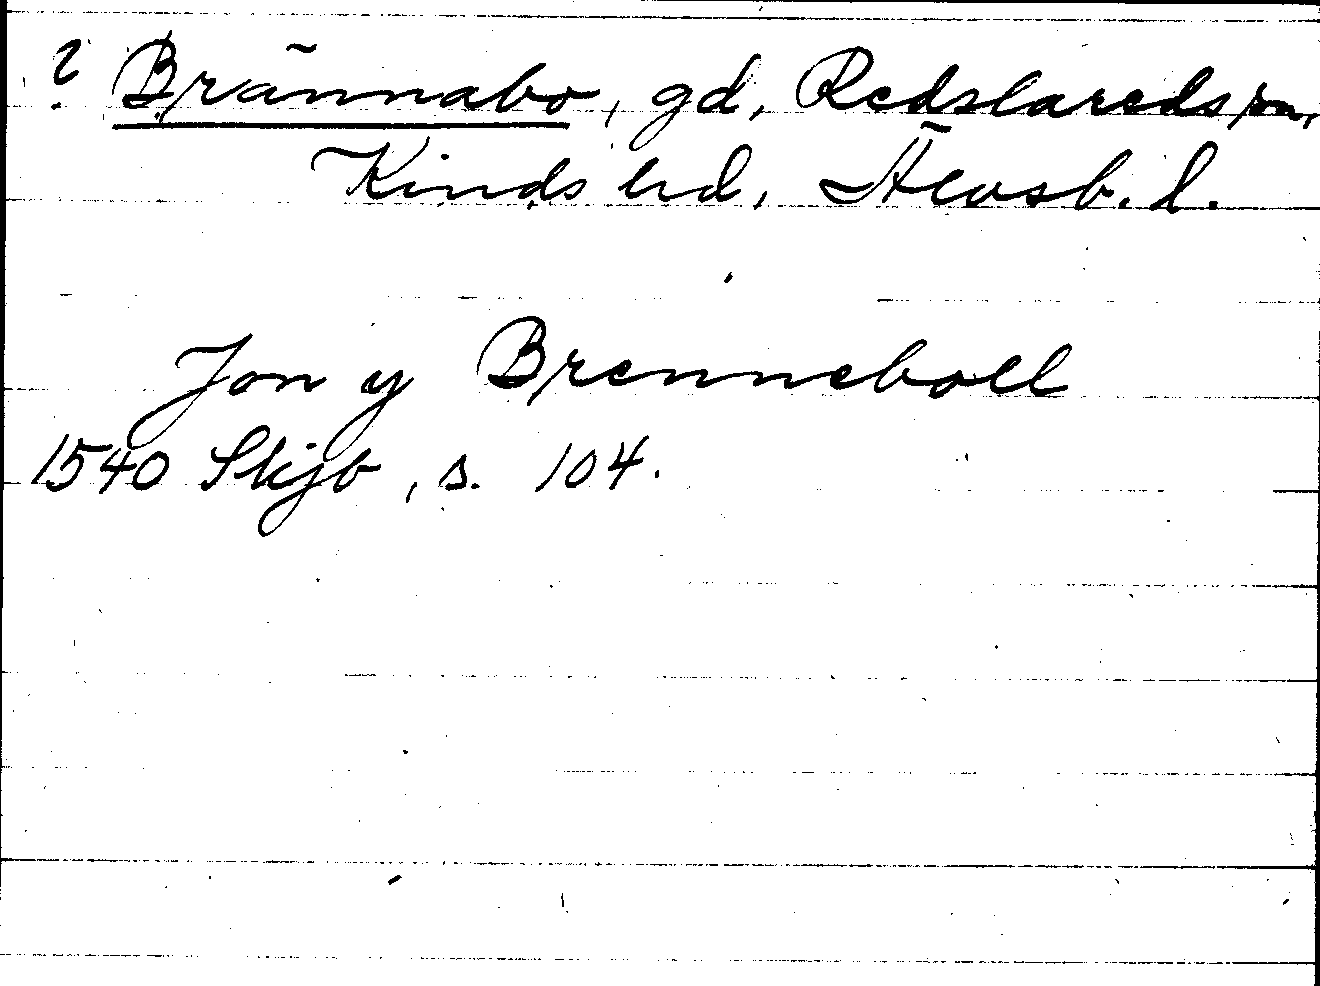 ? Brännabo, gd, Redslareds sn,
Kinds hd, Älvsb. l.
Jon y Brenneboll
1540 Skjb, s. 104.